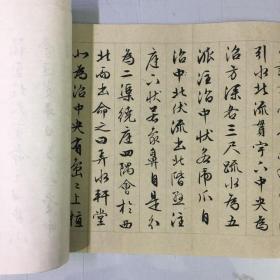 引水北流貫宇下中央為
沼方深各三尺疏水為五
派注沼中狀若虎爪自
沼北伏流出北階懸注
庭下狀若象鼻自是分
為二渠繞庭四隅會於西
北而出命之曰弄水軒堂
北為沼中央有島々上植